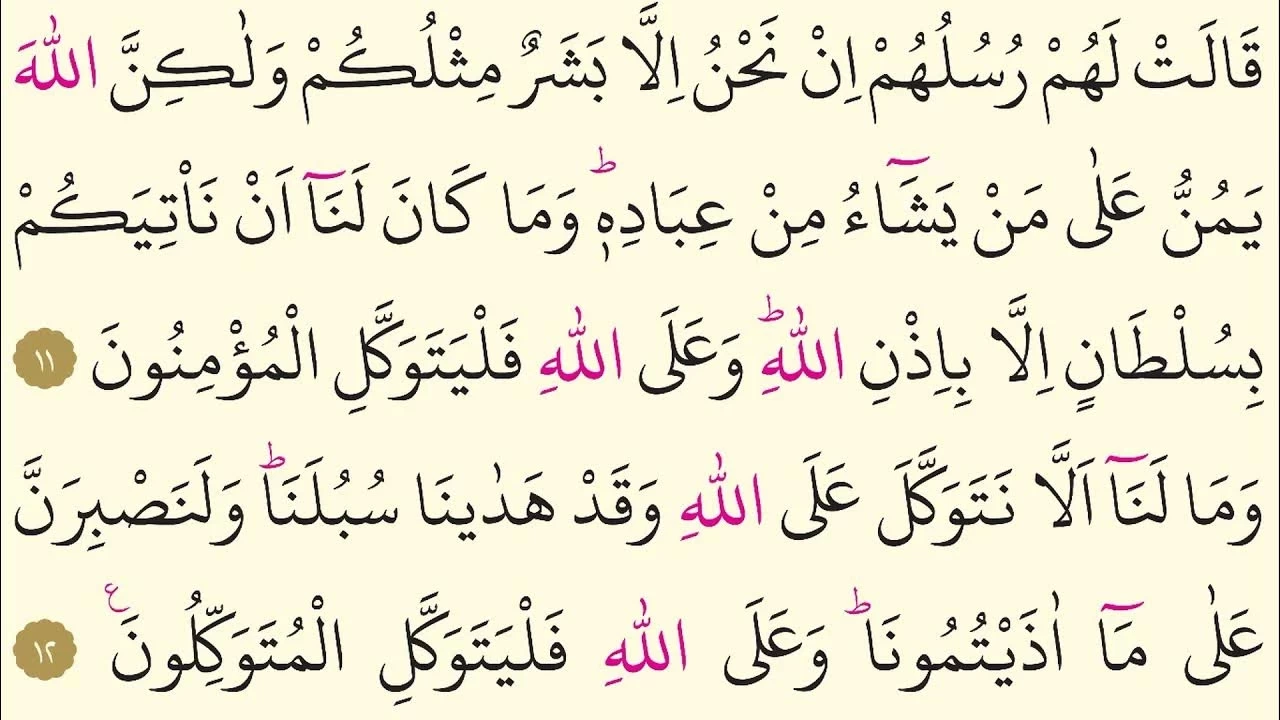 قَالَتْ لَهُمْ رُسُلُهُمْ اِنْ نَحْنُ اِلَّا بَشَرٌ مِثْلُكُمْ وَلٰكِنَّ اللّٰهَ
يَمُنُّ عَلٰى مَنْ يَشَٓاءُ مِنْ عِبَادِه۪ؕ وَمَا كَانَ لَنَٓا اَنْ نَأْتِيَكُمْ
بِسُلْطَانٍ اِلَّا بِاِذْنِ اللّٰهِؕ وَعَلَى اللّٰهِ فَلْيَتَوَكَّلِ الْمُؤْمِنُونَ ١١
وَمَا لَنَٓا اَلَّا نَتَوَكَّلَ عَلَى اللّٰهِ وَقَدْ هَدٰينَا سُبُلَنَاؕ وَلَنَصْبِرَنَّ
عَلٰى مَٓا اٰذَيْتُمُونَاؕ وَعَلَى اللّٰهِ فَلْيَتَوَكَّلِ الْمُتَوَكِّلُونَ۟ ع ١٢